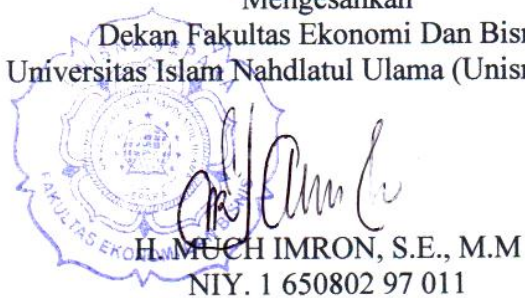 Mengesahkan
Dekan Fakultas Ekonomi Dan Bisn
Universitas Islam Nahdlatul Ulama (Unisn
FAKULTAS EKONOMI DAN BISNIS
H. MUCH IMRON, S.E., M.M
NIY. 1 650802 97 011